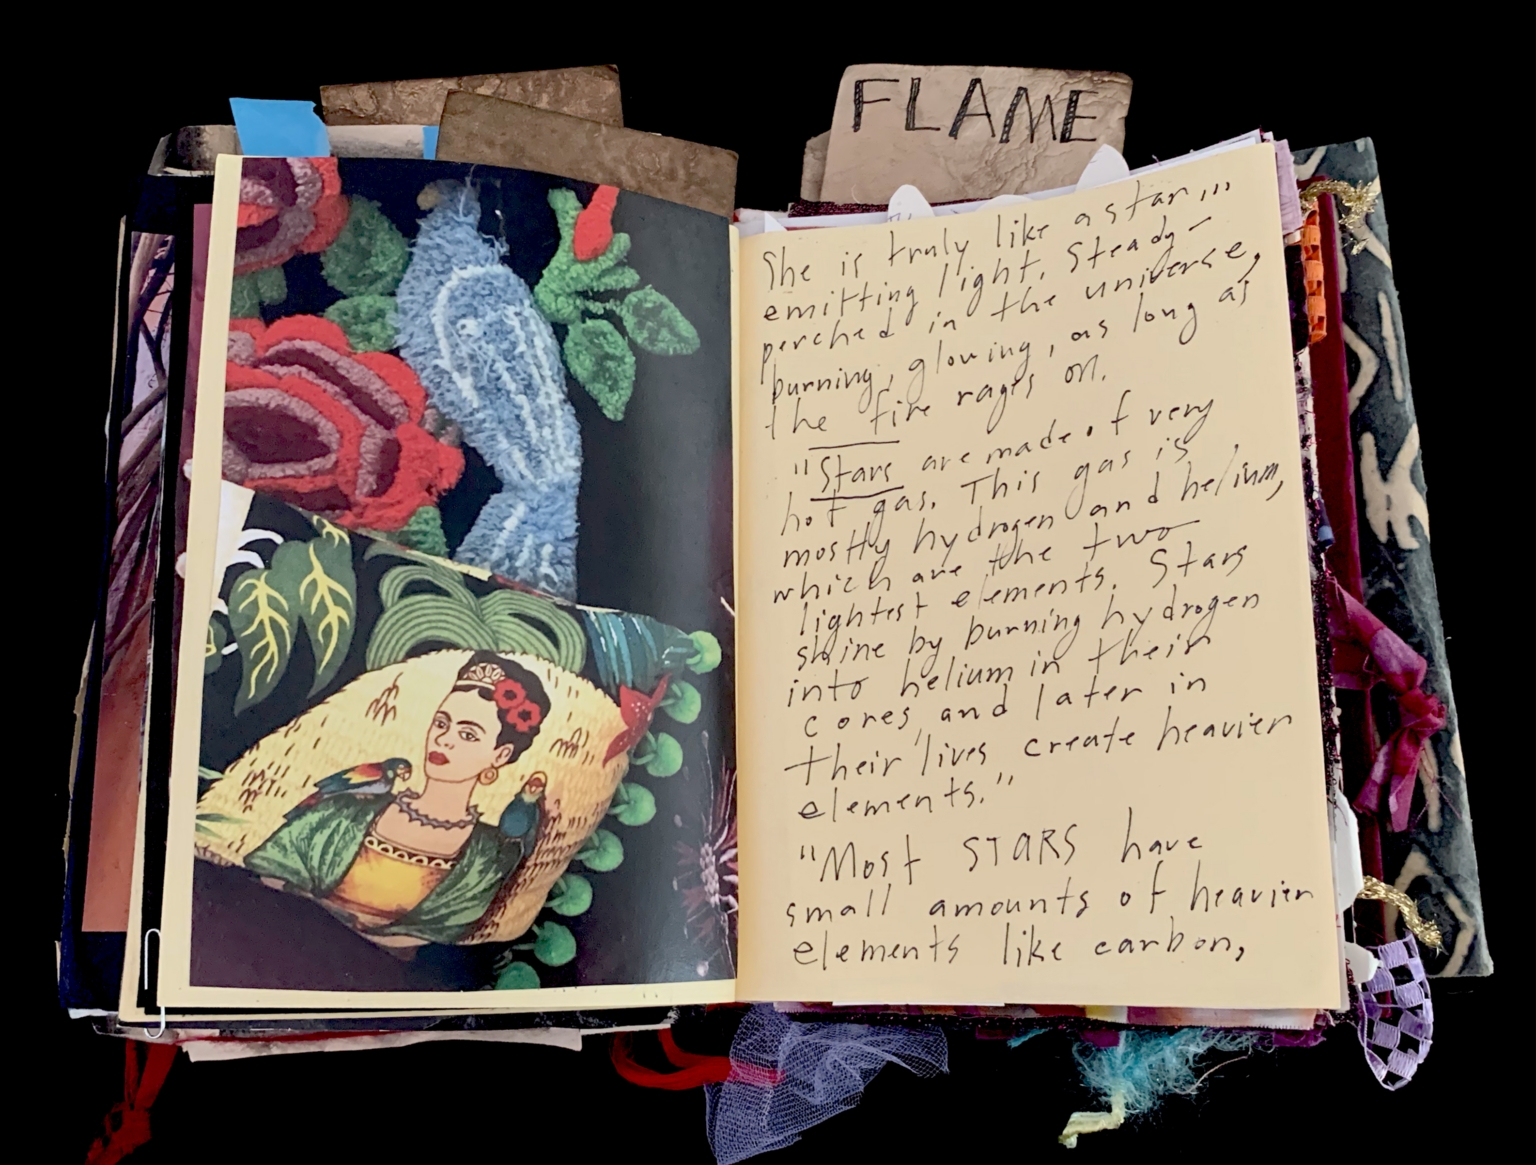 FLAME
She is truly like a star...
emitting light. Steady-
perched in the universe,
burning, glowing, as long as
the fire rages on.
"Stars are made of very
hot gas. This gas is
mostly hydrogen and helium,
which are the two
lightest elements. Stars
shine by burning hydrogen
into helium in their
cores, and later in
their lives create heavier
elements."
"Most STARS have
small amounts of heavier
elements like carbon,